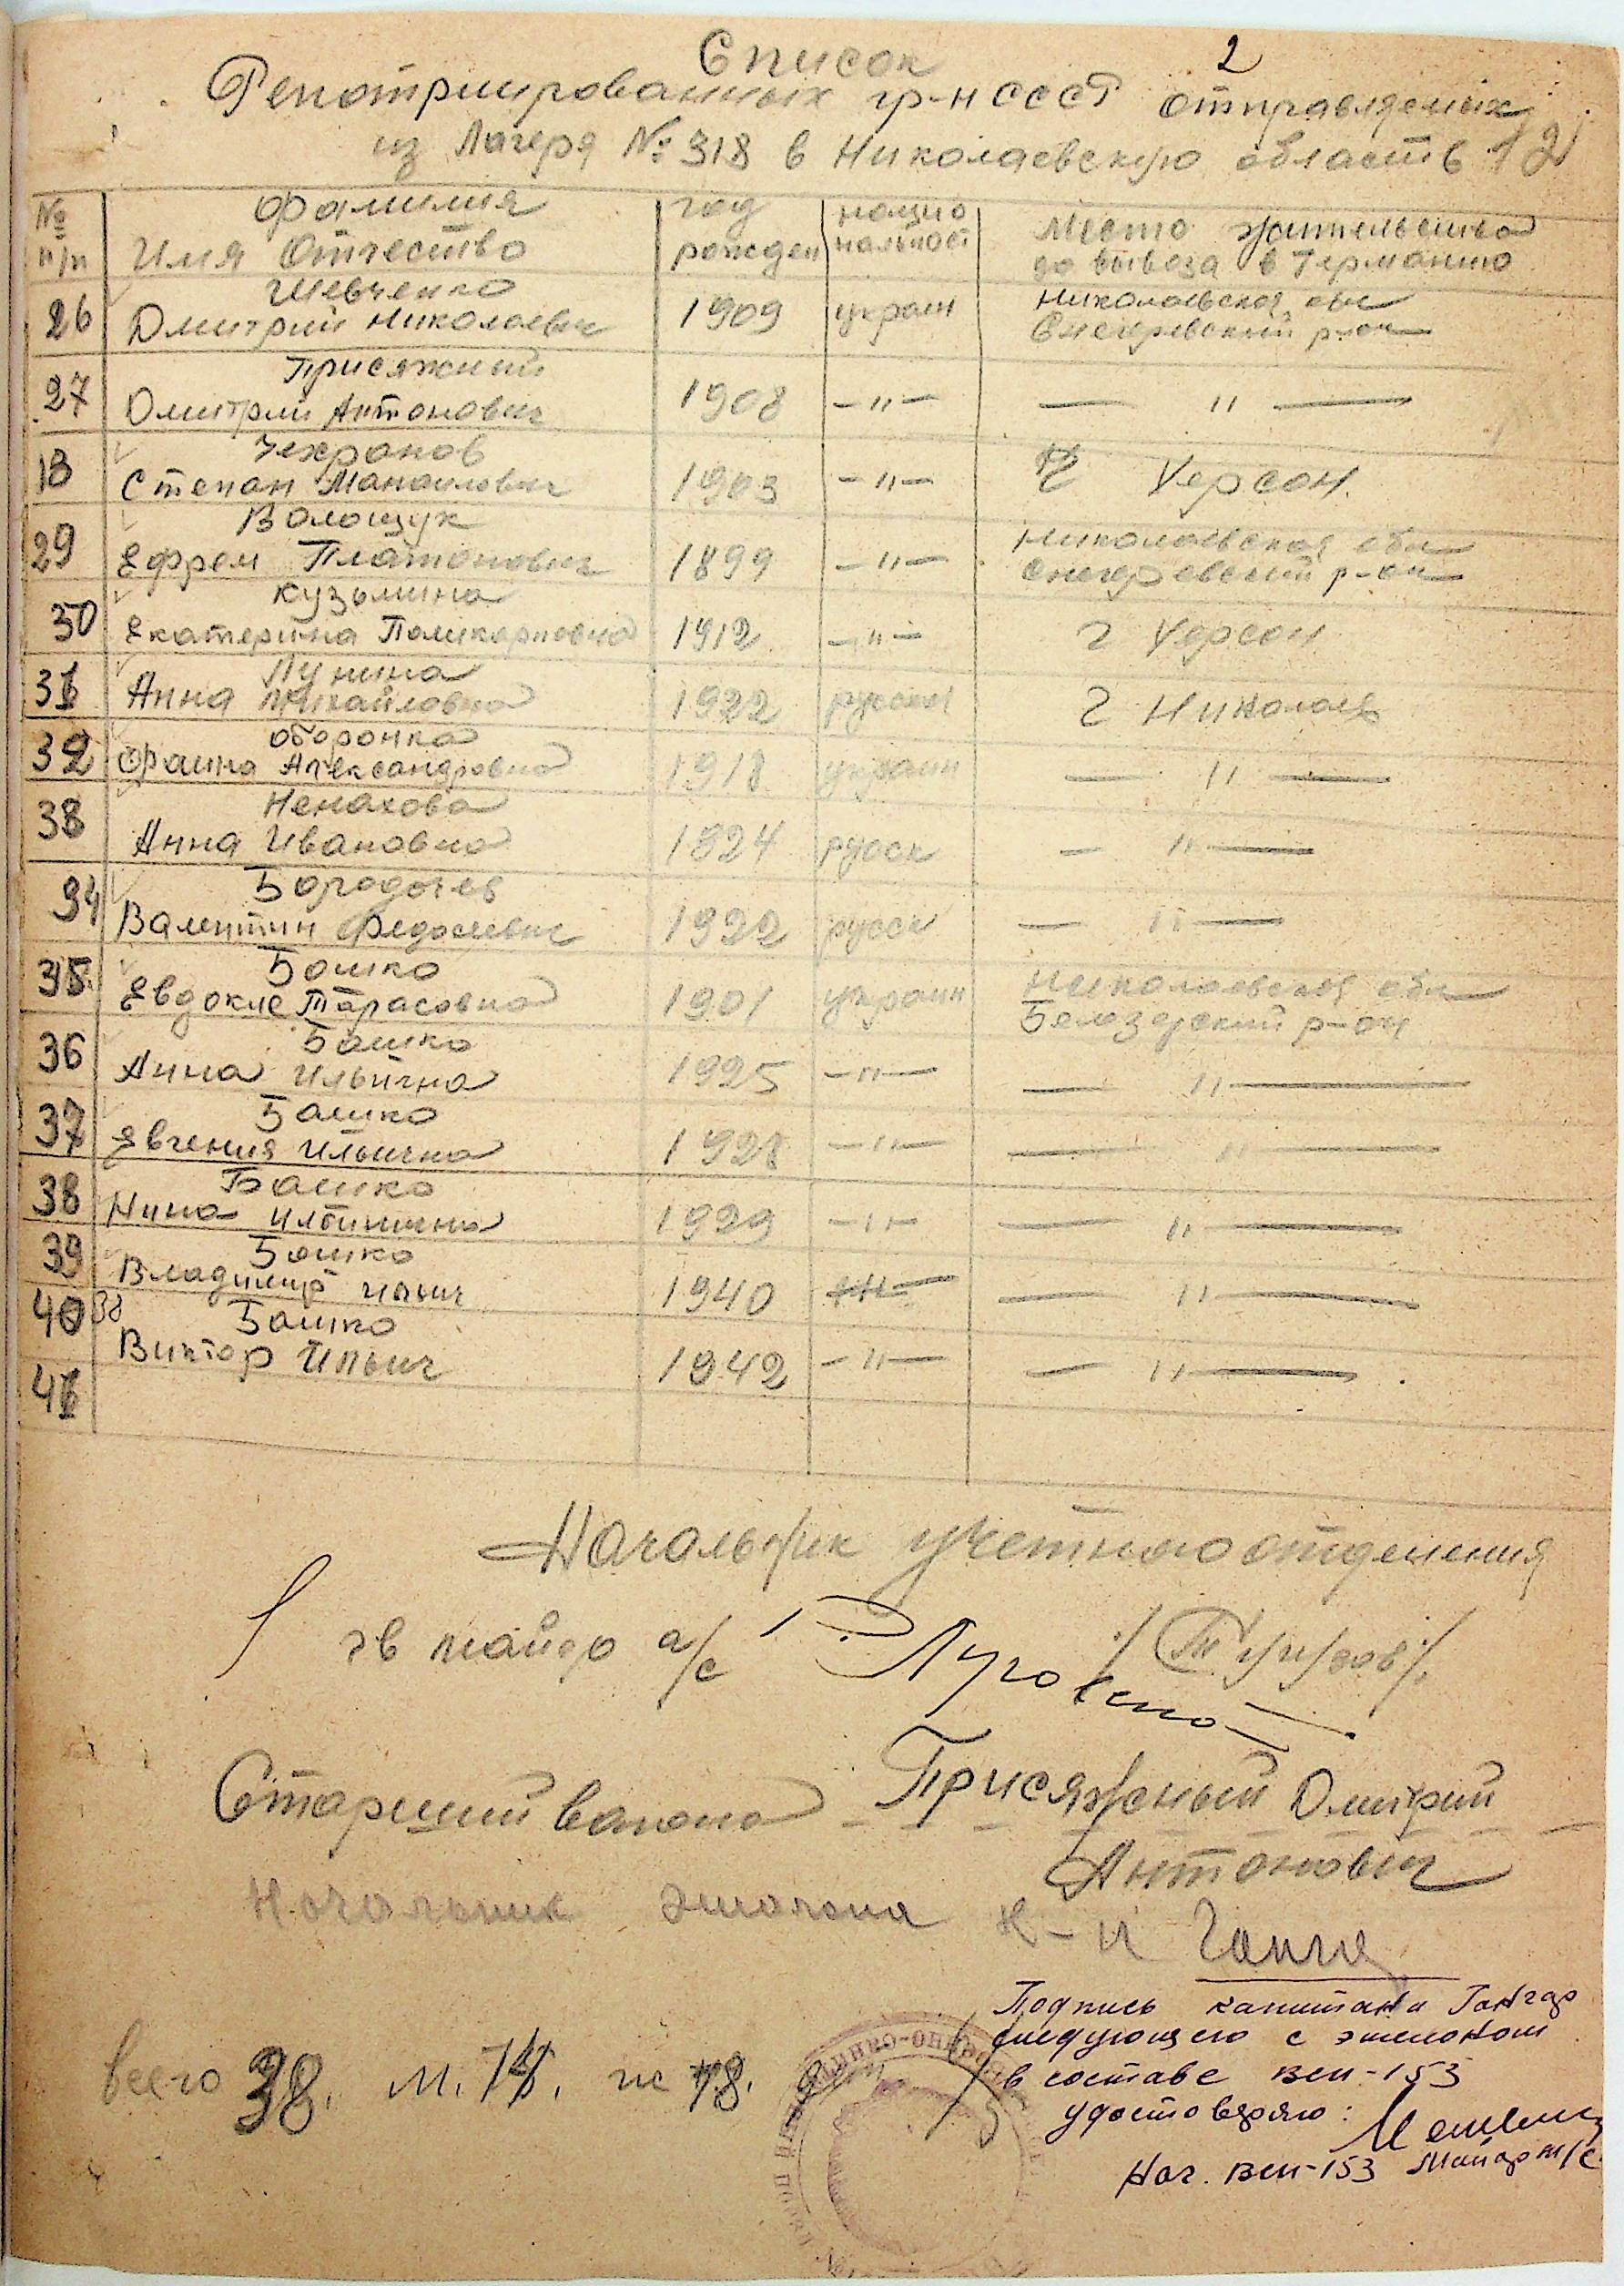 2
Список
Репотриированных гр-н СССР отправляемых
из Лагеря № 318 в Николаевскую область 12
№ п/п Фамилия Имя Отчество год рожден нацио нальност Место жительства до вывоза в Германию
26 Шевченко Дмитрий Николаевич 1909 украин Николаевская обл Снегиревский р-он
27 Присяжний Дмитрий Антонович 1908 —"— — " —
Степан 1903 —"— г Херсон.
29 Волощук Ефрем Платонович 1899 —"— Николаевская обл Снегиревский р-он
30 Кузьмина Екатерина Поликарповна 1912 —"— г Херсон
31 Лунина Анна Михайловна 1922 русская г Николаев
32 Оборонка Фаина Александровна 1918 украин — " —
33 Ненахова Анна Ивановна 1924 русск — " —
34 Бородачев Валентин Федосеевич 1922 русск — " —
35 Башко Евдокие Тарасовна 1901 украин Николаевская обл Белозерский р-он
36 Башко Анна Ильична 1925 —"— — " —
37 Башко Евгения Ильична 1928 —"— — " —
38 Башко Нина Ильинична 1929 —"— — " —
39 Башко Владимир Ильич 1940 —"— — " —
40 Башко Виктор Ильич 1942 —"— — " —
41
Начальник учетного отделения
гв майор а/с
Старший вагона — Присяжный Дмитрий
Антонович
Начальник эшалона к-н
Подпись капитана Гончар
следующего с эшелоном
в составе ВСП-153
удостоверяю:
Нач. ВСП-153 Майор м/с
всего 38. м. ж 18.